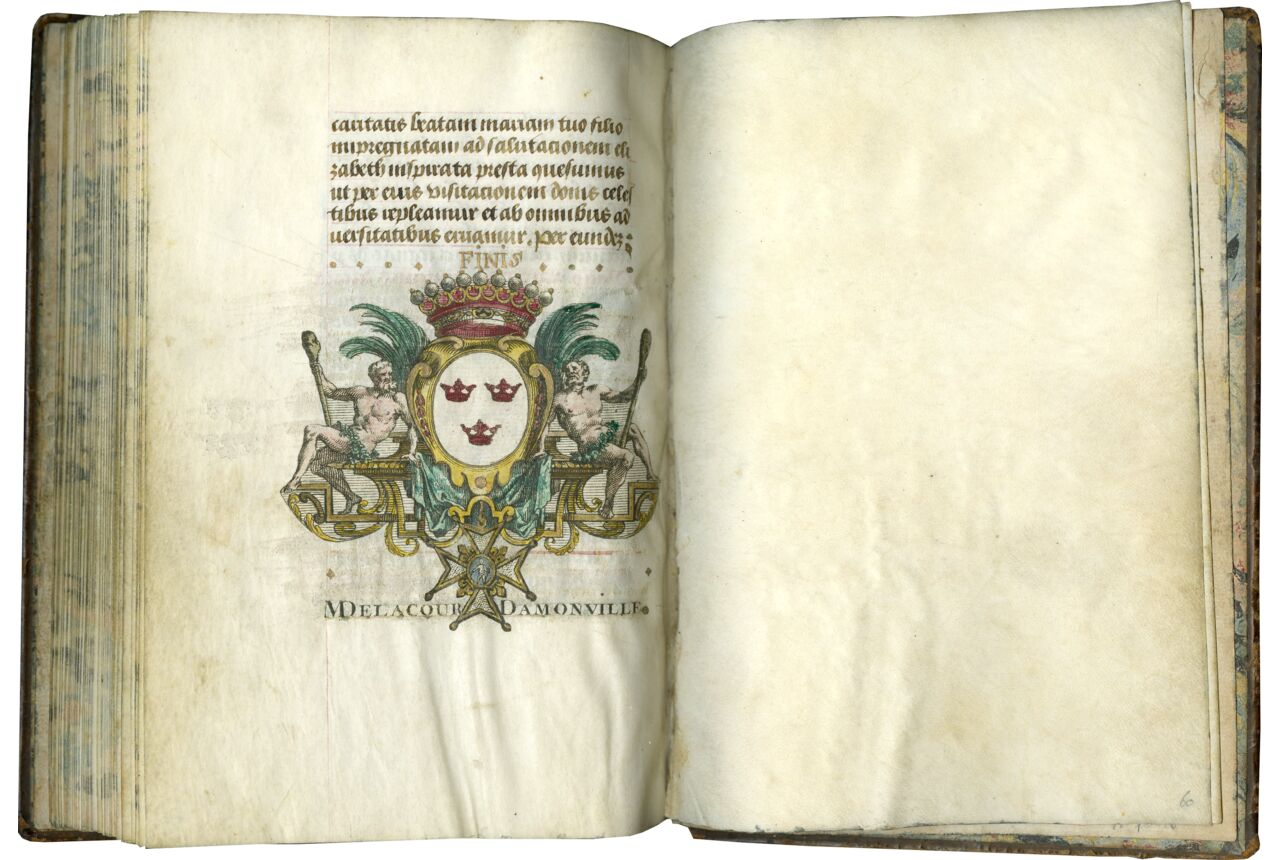 caritatis beatam mariam tuo filio
impregnatam ad salutacionem eli
zabeth inspirata presta quesumus
ut per eius visitacionem donis celes
tibus repleamur et ab omnibus ad
versitatibus eruamur. Per eundez
FINIS
M DELACOUR DAMONVILLE.
60